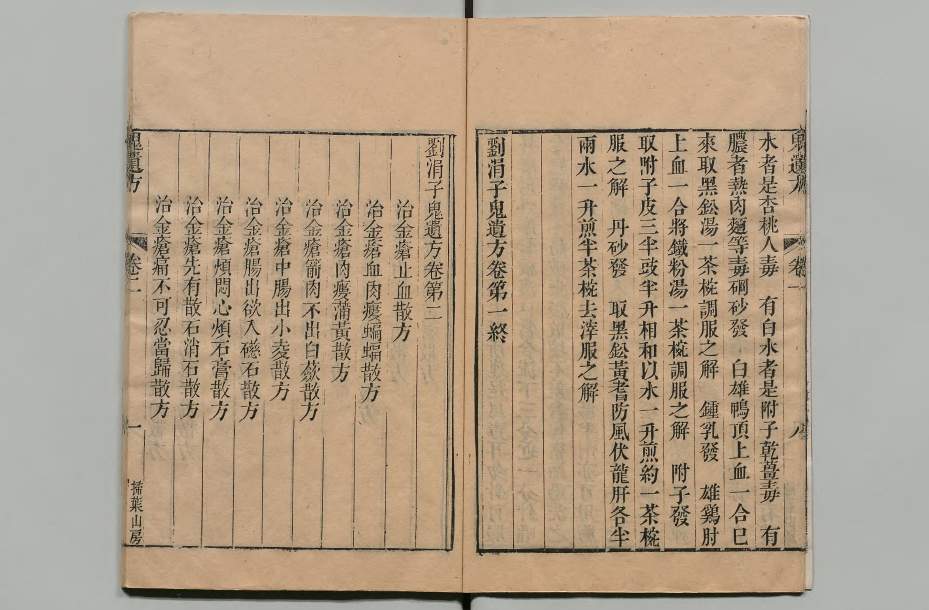 鬼遺方 卷一 八
水者是杏桃人毒 有白水者是附子乾薑毒 有
膿者熱肉麵等毒硇砂發 白雄鴨頂上血一合巳
來取黑鈆湯一茶椀調服之解 鍾乳發 雄鷄肘
上血一合將鐵粉湯一茶椀調服之解 附子發
取附子皮三半豉半升相和以水一升煎約一茶椀
服之解 丹砂發 取黑鈆黃耆防風伏龍肝各半
兩水一升煎半茶椀去滓服之解
劉涓子鬼遺方卷第一終
劉涓子鬼遺方卷第二
治金瘡止血散方
治金瘡血肉瘻蝙蝠散方
治金瘡肉瘻蒲黃散方
治金瘡箭肉不出白蘞散方
治金瘡中腸出小麥散方
治金瘡腸出欲入磁石散方
治金瘡煩悶心煩石膏散方
治金瘡先有散石消石散方
治金瘡痛不可忍當歸散方
鬼遺方 卷二 一 掃葉山房